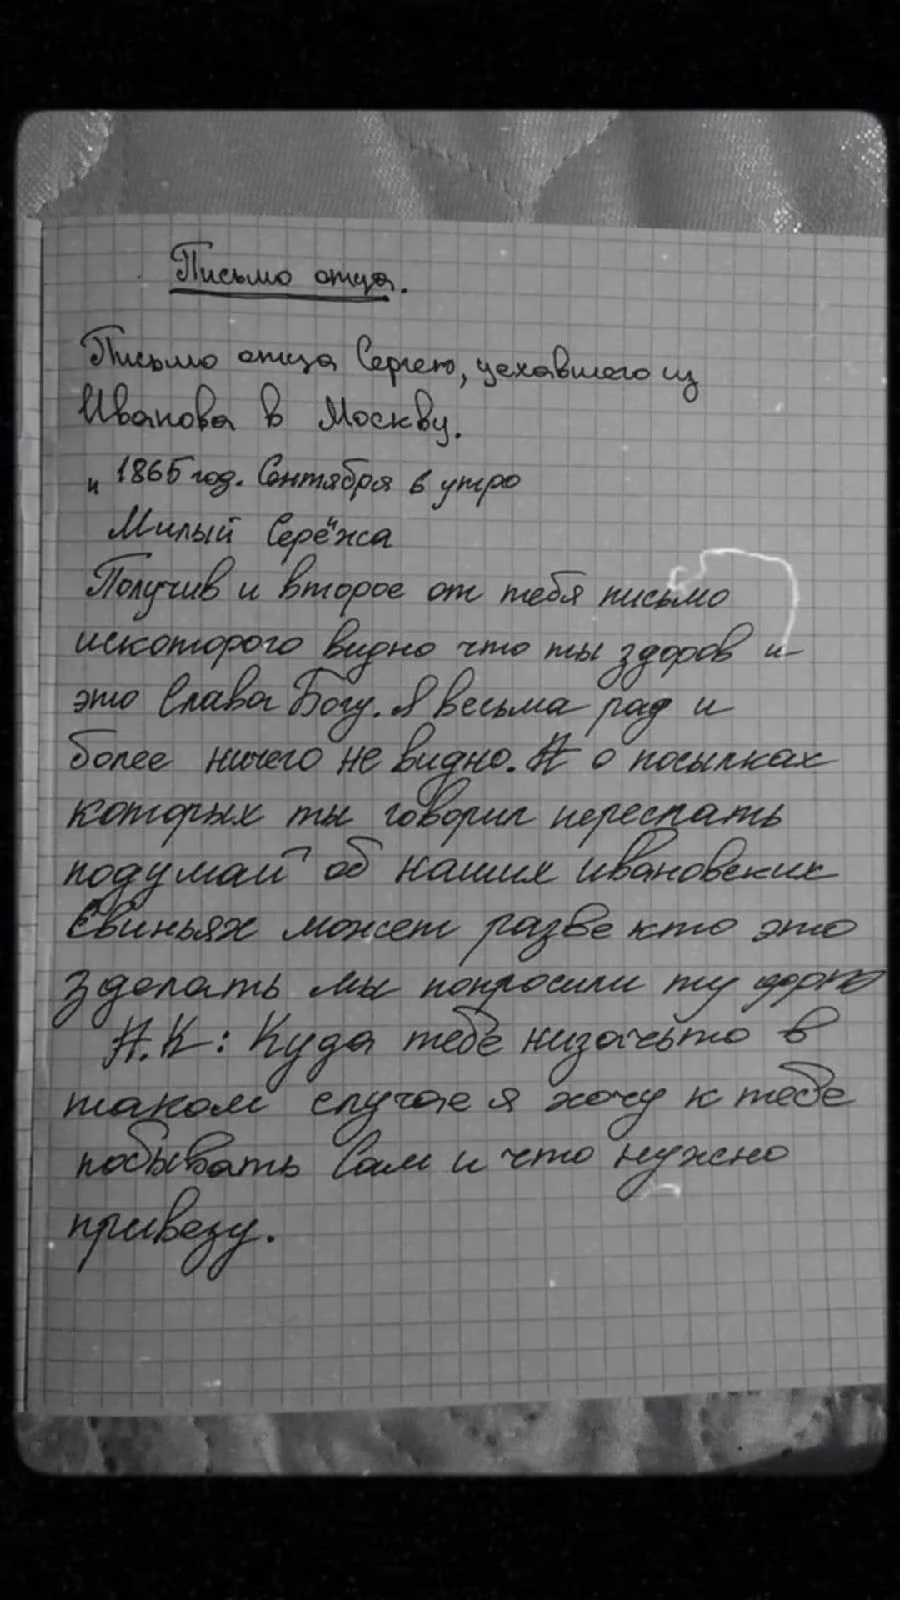 Письмо отца.
Письмо отца Сергею, уехавшего из
Иванова в Москву.
" 1865 год. Сентября в утро
Милый Серёжа
Получив и второе от тебя письмо
искоторого видно что ты здоров и
это Слава Богу. Я весьма рад и
более ничего не видно. А о посылках
которых ты говорил переслать
подумай об наших ивановских
Свиньях может разве кто это
зделать мы попросили ту
А.К: Куда тебе низачьто в
таком случае я хочу к тебе
побывать Сам и что нужно
привезу.